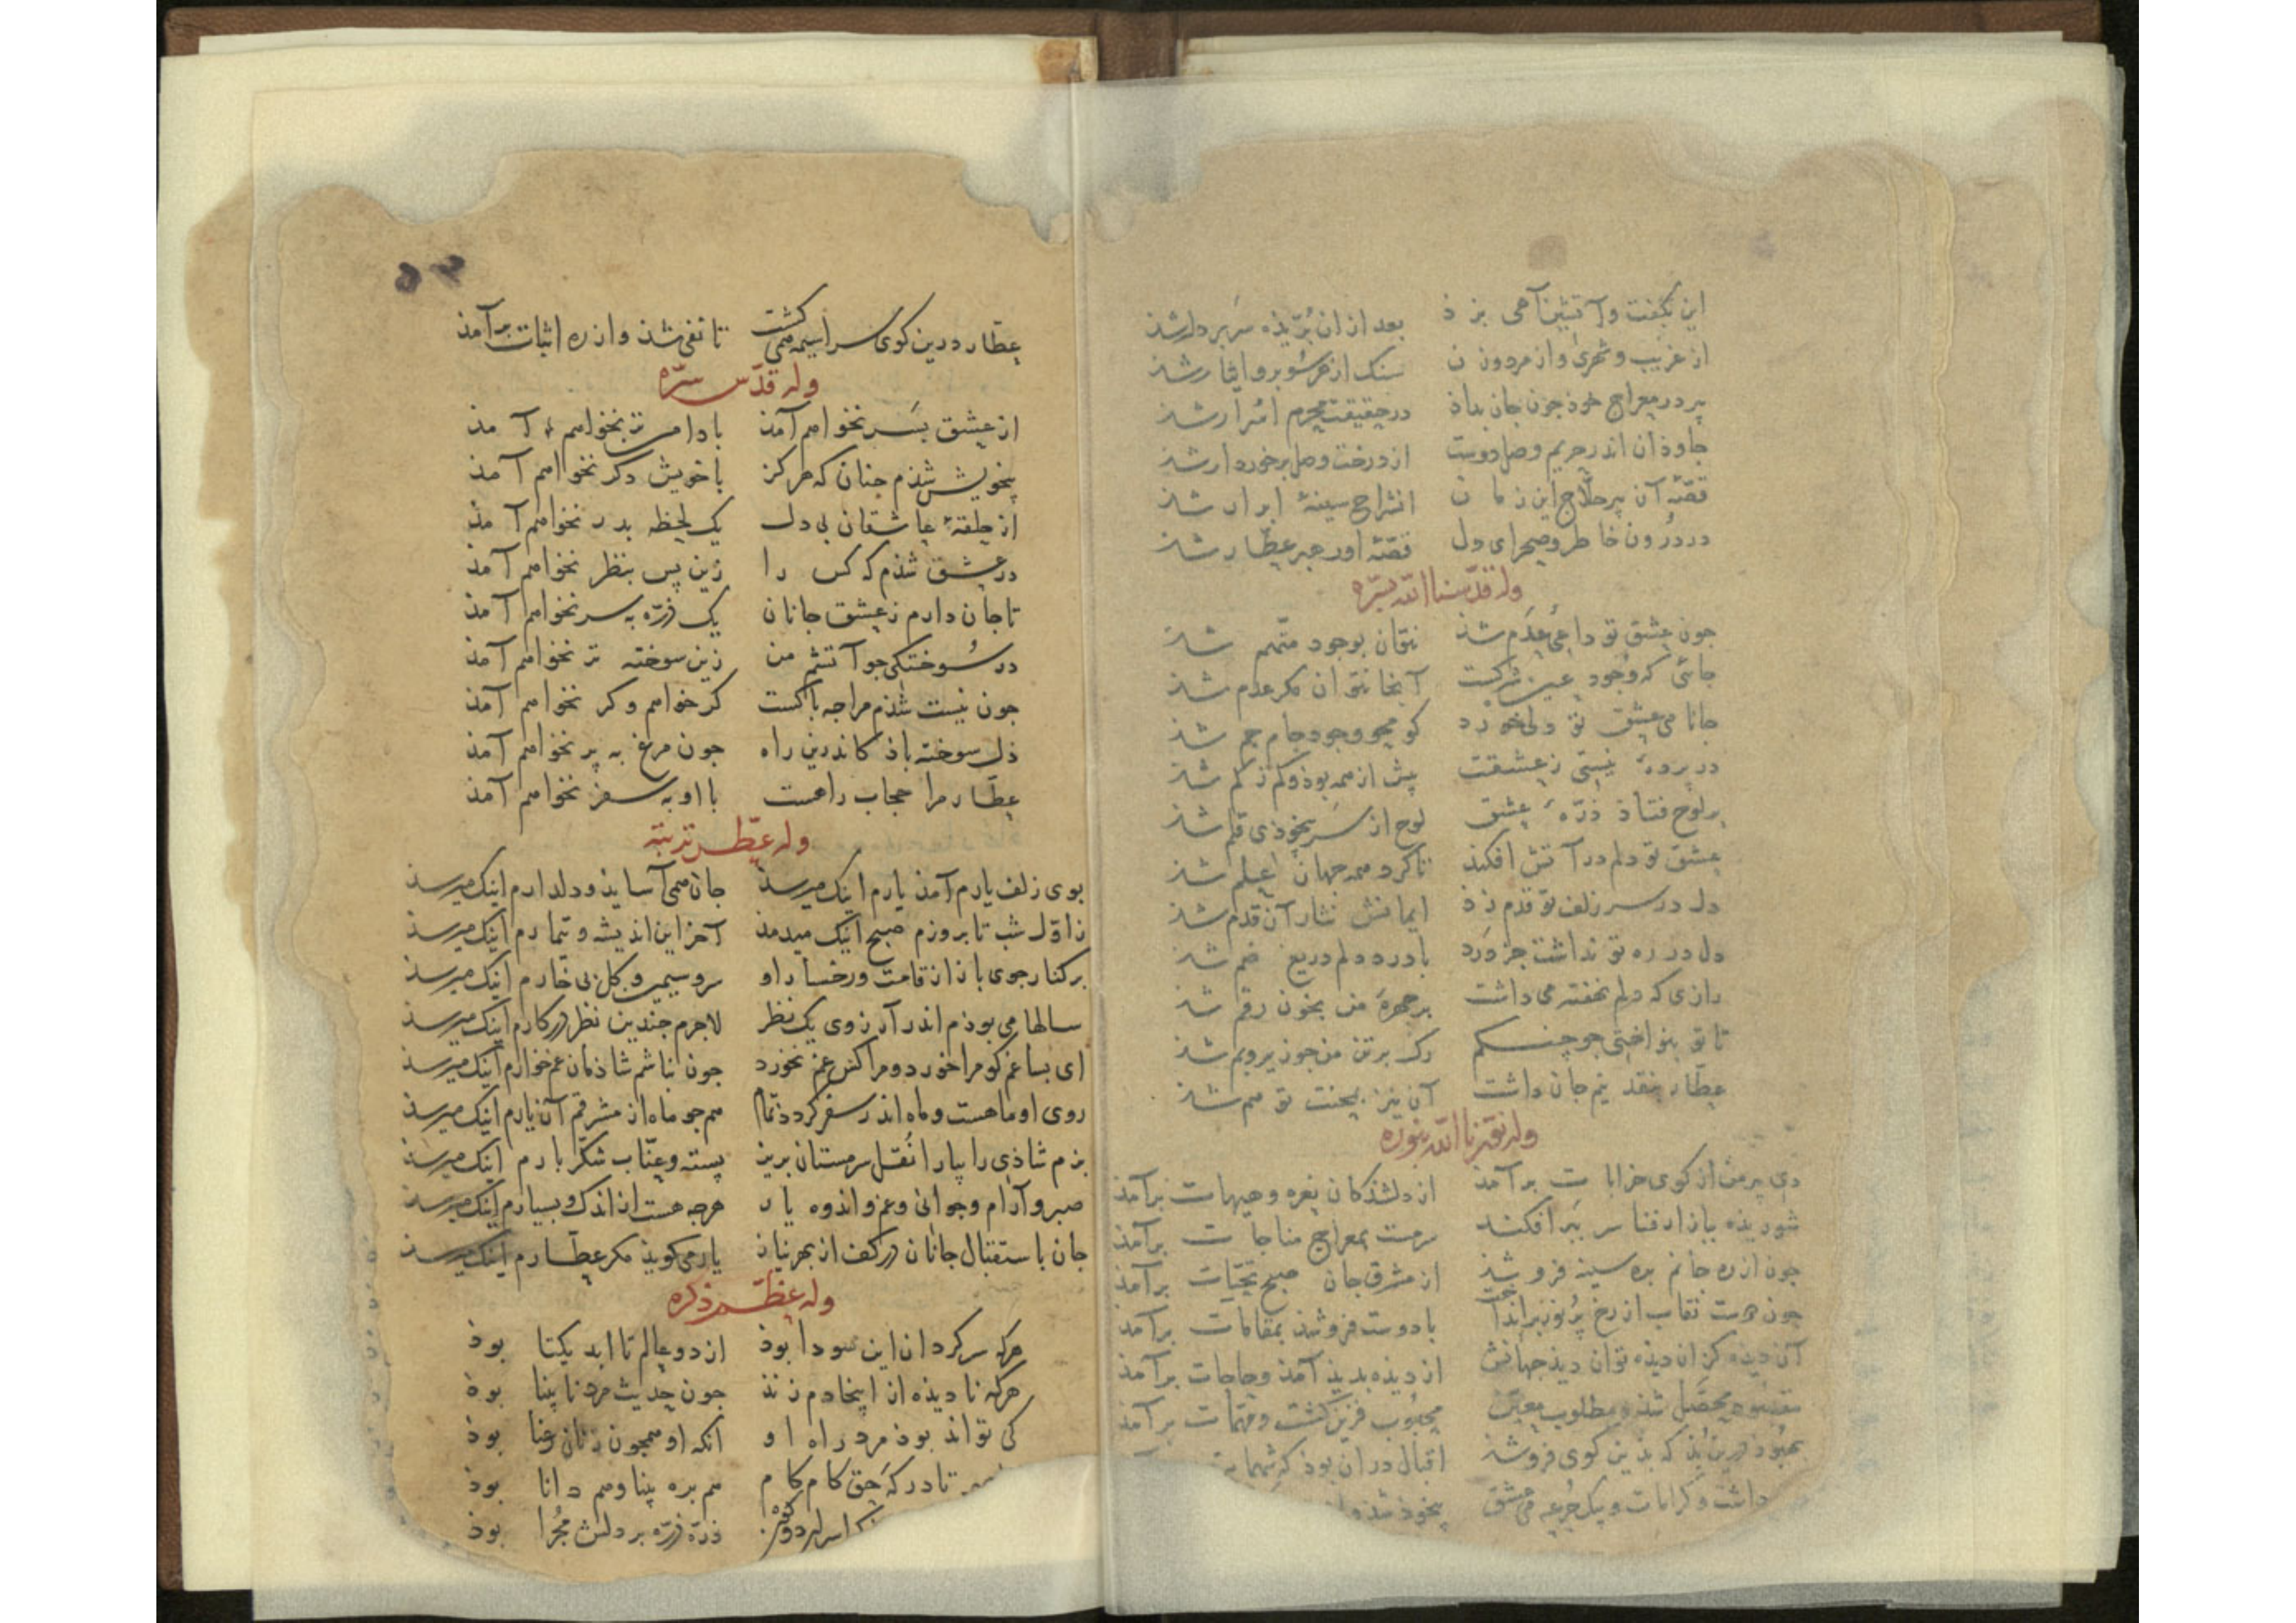 این بگفت و آتشین آهی بزذ بعد از ان بُرّیذه سر بر دار شذ
از غریب و شهری و از مرد و زن سنک از هر سُو برو ایثار شذ
پیر در معراج خوذ جون جان بداذ در حقیقت محرم اسرار شذ
جاوذان اندر حریم وصل دوست از درخت وصل برخوردار شذ
قصّهٔ آن پیر حلّاج این زمان انشراح سینهٔ ابرار شذ
در درُون خاطر و صحرای دل قصّهٔ او رهبر عطّار شذ
وله قدّسنا الله بسرّه
جون عشق تو داعی عدم شذ نتوان بوجود متّهم شذ
جائی که وجُود عین شرکست آنجا نتوان مکر عدم شذ
جانا می عشق تو دلی خورد کو محو وجود جام جم شذ
در پردهٔ نیستی ز عشقت پیش از همه بوذ و کم ز کم شذ
بر لوح فتاذ ذرّهٔ عشق لوح از سَر بیخوذی قلم شذ
عشق تو دلم در آتش افکند تا کرد همه جهان علم شذ
دل در سر زلف تو قدم زذ ایمانش نثار آن قدم شذ
دل در ره تو نداشت جز درد با درد دلم دریغ ضم شذ
رازی که دلم نهفته می داشت بر چهرهٔ من بخون رقم شذ
تا تو بنواختی جو چنکم رک بر تن من جو زیر و بم شذ
عطّار بنقد نیم جان داشت آن نیز بمحنت تو هم شذ
وله نوّرنا الله بنوره
دی پیر من از کوی خرابات برآمذ از دلشذکان نعره و هیهات برآمذ
شوریذه ببازار فنا سر ببَر افکند سرمست بمعراج مناجات برآمذ
جون از ره جانم بره سینه فرو شذ از مشرق جان صبح تحیّات برآمذ
جون دوست نقاب از رخ پُر نور برانداخت با دوست فرو شذ بمقامات برآمذ
آن دیذه کزان دیذه توان دیذ جهانش از دیذه بدیذ آمذ و حاجات برآمذ
مقصُود محصّل شذ و مطلوب معیّن محبُوب قرین کشت و مهمّات برآمذ
بهبُوذ درین بُذ که بذین کوی فرو شذ اقبال در آن بوذ که شهمات
داشت و کرامات و یک جُرعه می عشق بیخوذ شذ و
عطّار درین کوی سراسیمه همی کشت تا نفی شذ و از ره اثبات برآمذ
وله قدّس سرّه
از عشق بسَر نخواهم آمذ با دامن تر نخواهم آمذ
بیخویش شذم جنان که هرکز با خویش دکر نخواهم آمذ
از حلقهٔ عاشقان بی دل یک لحظه بدر نخواهم آمذ
در عشق شذم که کس را زین پس بنظر نخواهم آمذ
تا جان دارم ز عشق جانان یک ذرّه بسر نخواهم آمذ
در سُوختکی جو آتشم من زین سوخته تر نخواهم آمذ
جون نیست شذم مرا جه باکست کر خواهم و کر نخواهم آمذ
دل سوخته باذ کاندرین راه جون مرغ به پر نخواهم آمذ
عطّار مرا حجاب راهست با او به سفر نخواهم آمذ
وله عطّر تربته
بوی زلف یارم آمذ یارم اینک میرسذ جان همی آسایذ و دلدارم اینک میرسذ
ز اوّل شب تا بروزم صبح اینک میدمذ آخر این اندیشه و تیمارم اینک میرسذ
بر کنار جوی باذ از قامت و رخسار او سرو سیمین و کل بی خارم اینک میرسذ
سالها می بوذم اندر آرزوی یک نظر لاجرم جندین نظر در کارم اینک میرسذ
ای بسا غم کو مرا خورد و مرا کس غم نخورد جون نباشم شاذمان غم خوارم اینک میرسذ
روی او ماهست و ماه اندر سفر کردد تمام هم جو ماه از مشرقم آن یارم اینک میرسذ
بزم شاذی را بیارا نُقل سرمستان بریز پسته و عنّاب شکّر بارم اینک میرسذ
صبر و آرام و جوانی و غم و اندوه یار هرجه هست از اندک و بسیارم اینک میرسذ
جان باستقبال جانان در کف از بهر نیاز یار می کویذ مکر عطّارم اینک میرسذ
وله عظّم ذکره
هرکه سرکردان این سودا بوذ از دو عالم تا ابد یکتا بوذ
هرکه نادیذه از اینجا دم زنذ جون حدیث مرد نابینا بوذ
کی تواند بوذ مرد راه او آنکه او همجون زنان رعنا بوذ
تا درکه حق کام کام هم بره بینا و هم دانا بوذ
ذرّه ذرّه بر دلش مجرا بوذ